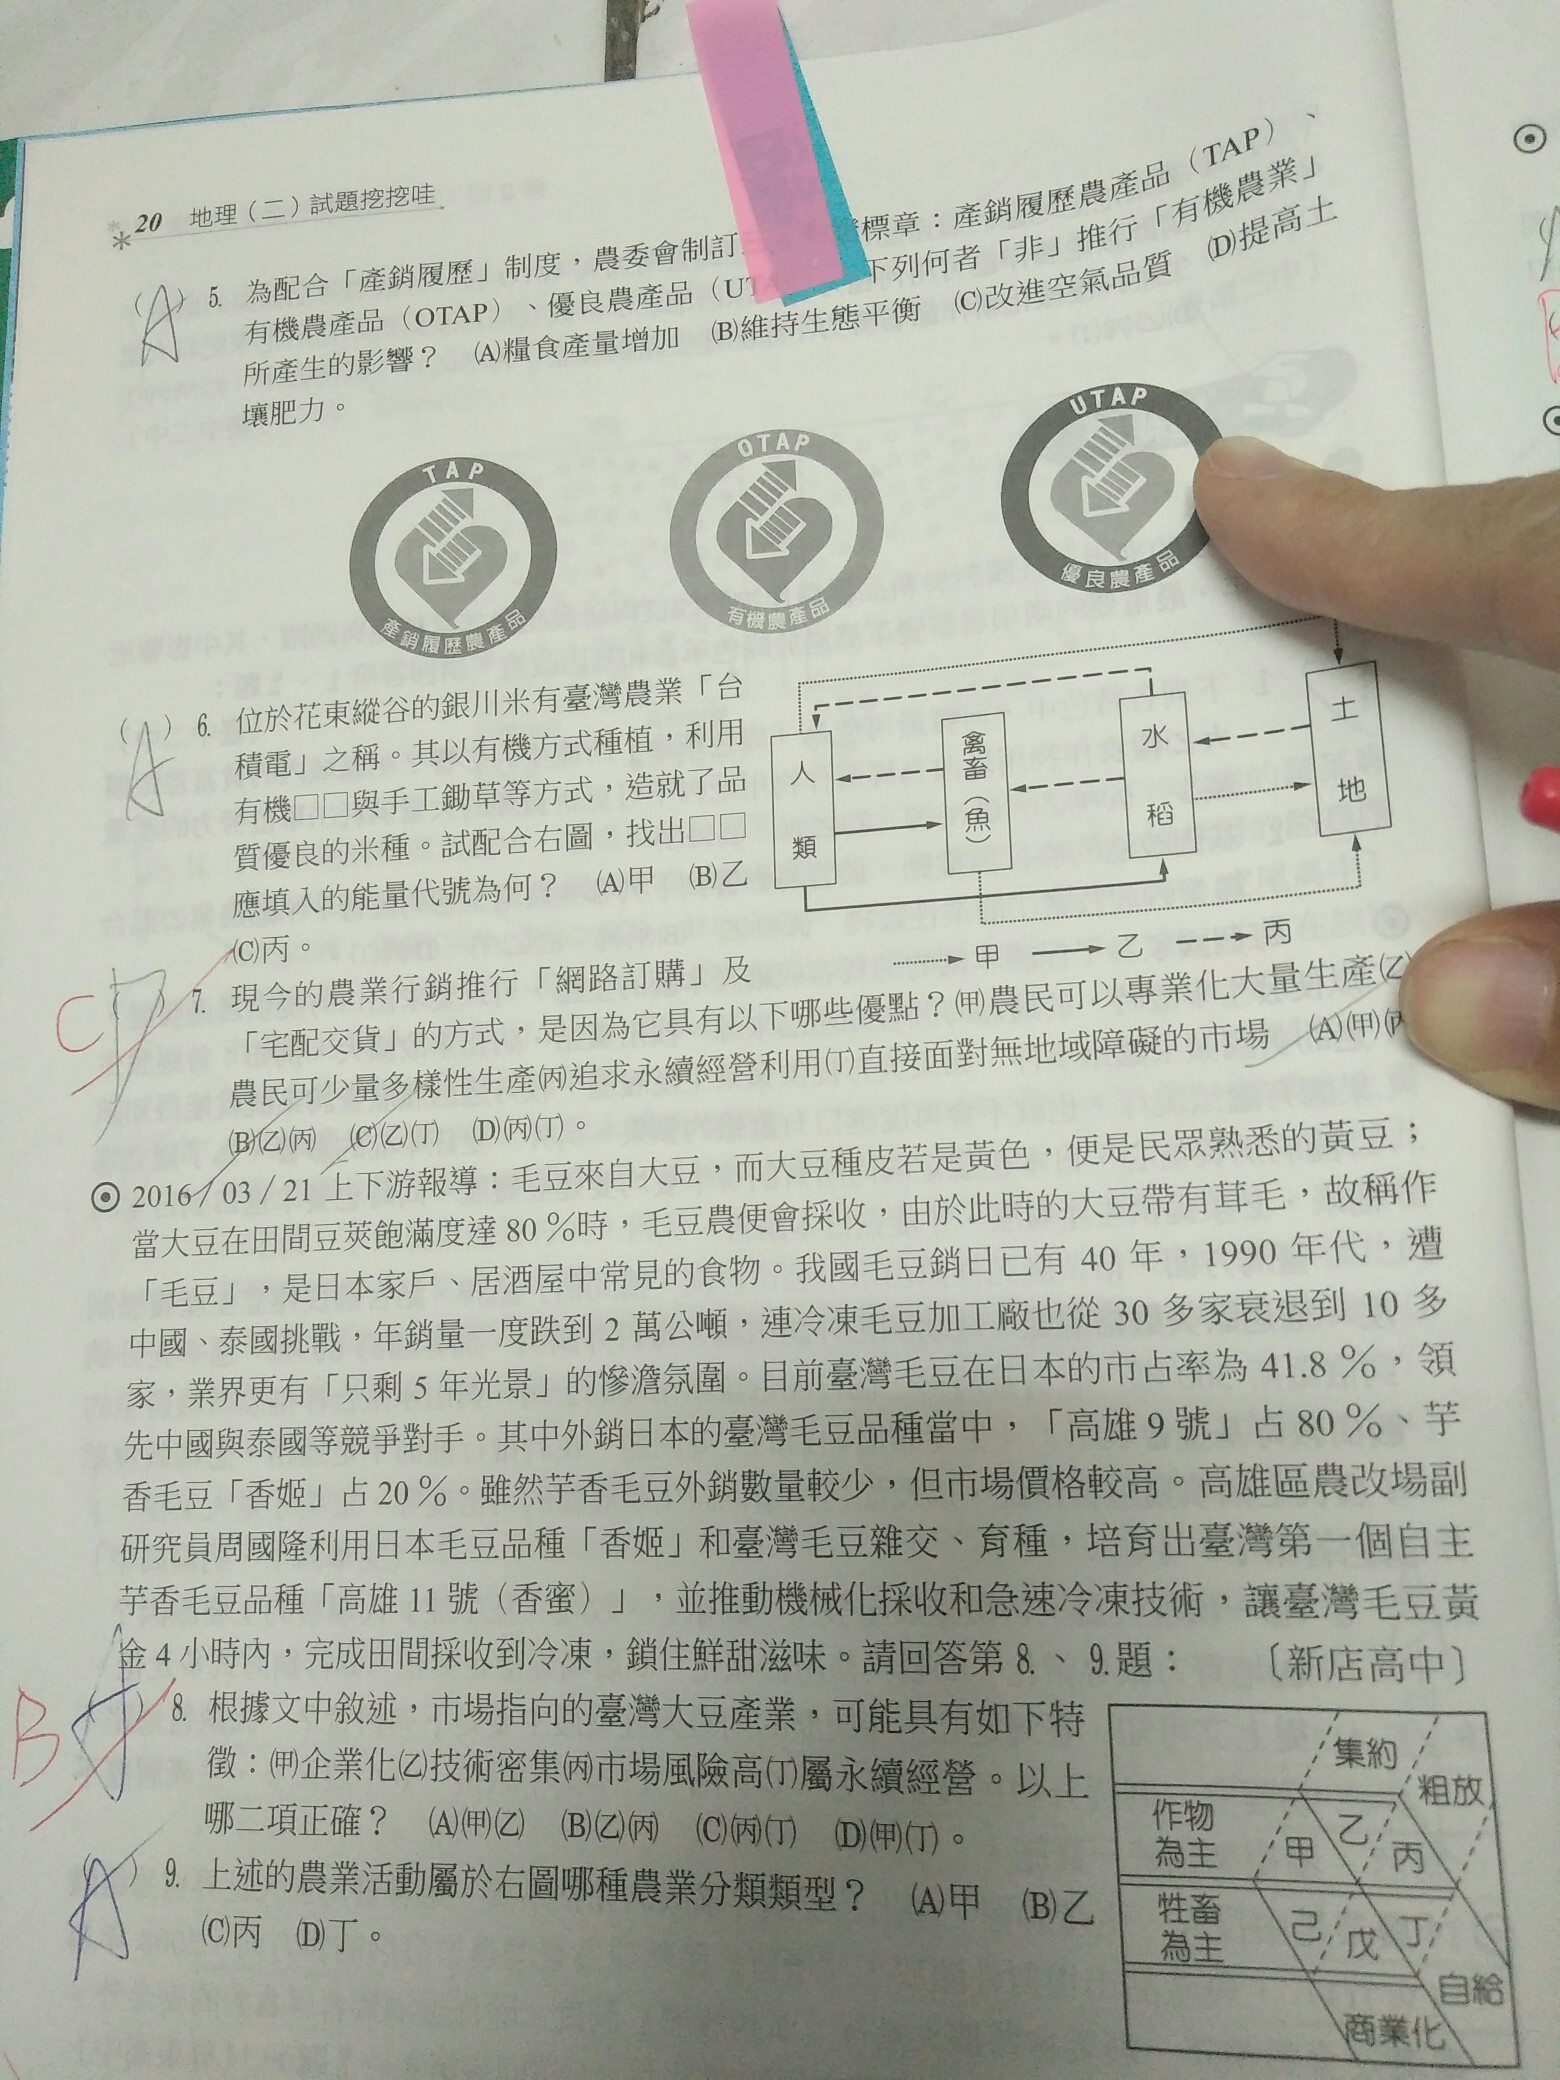 20 地理（二）試題挖挖哇
（A）5. 為配合「產銷履歷」制度，農委會制訂 標章：產銷履歷農產品（TAP）、
有機農產品（OTAP）、優良農產品（UT 下列何者「非」推行「有機農業」
所產生的影響？ (A)糧食產量增加 (B)維持生態平衡 (C)改進空氣品質 (D)提高土
壤肥力。
TAP
產銷履歷農產品
OTAP
有機農產品
UTAP
優良農產品
（A）6. 位於花東縱谷的銀川米有臺灣農業「台
積電」之稱。其以有機方式種植，利用
有機□□與手工鋤草等方式，造就了品
質優良的米種。試配合右圖，找出□□
應填入的能量代號為何？ (A)甲 (B)乙
(C)丙。
人類
禽畜（魚）
水稻
土地
甲 乙 丙
C
（D）7. 現今的農業行銷推行「網路訂購」及
「宅配交貨」的方式，是因為它具有以下哪些優點？(甲)農民可以專業化大量生產(乙)
農民可少量多樣性生產(丙)追求永續經營利用(丁)直接面對無地域障礙的市場 (A)(甲)(丙)
(B)(乙)(丙) (C)(乙)(丁) (D)(丙)(丁)。
⊙ 2016／03／21 上下游報導：毛豆來自大豆，而大豆種皮若是黃色，便是民眾熟悉的黃豆；
當大豆在田間豆莢飽滿度達 80％時，毛豆農便會採收，由於此時的大豆帶有茸毛，故稱作
「毛豆」，是日本家戶、居酒屋中常見的食物。我國毛豆銷日已有 40 年，1990 年代，遭
中國、泰國挑戰，年銷量一度跌到 2 萬公噸，連冷凍毛豆加工廠也從 30 多家衰退到 10 多
家，業界更有「只剩 5 年光景」的慘澹氛圍。目前臺灣毛豆在日本的市占率為 41.8％，領
先中國與泰國等競爭對手。其中外銷日本的臺灣毛豆品種當中，「高雄 9 號」占 80％、芋
香毛豆「香姬」占 20％。雖然芋香毛豆外銷數量較少，但市場價格較高。高雄區農改場副
研究員周國隆利用日本毛豆品種「香姬」和臺灣毛豆雜交、育種，培育出臺灣第一個自主
芋香毛豆品種「高雄 11 號（香蜜）」，並推動機械化採收和急速冷凍技術，讓臺灣毛豆黃
金 4 小時內，完成田間採收到冷凍，鎖住鮮甜滋味。請回答第 8.、9.題： 〔新店高中〕
B
（ ）8. 根據文中敘述，市場指向的臺灣大豆產業，可能具有如下特
徵：(甲)企業化(乙)技術密集(丙)市場風險高(丁)屬永續經營。以上
哪二項正確？ (A)(甲)(乙) (B)(乙)(丙) (C)(丙)(丁) (D)(甲)(丁)。
（A）9. 上述的農業活動屬於右圖哪種農業分類類型？ (A)甲 (B)乙
(C)丙 (D)丁。
集約 粗放
作物為主 甲 乙 丙
牲畜為主 己 戊 丁
自給
商業化